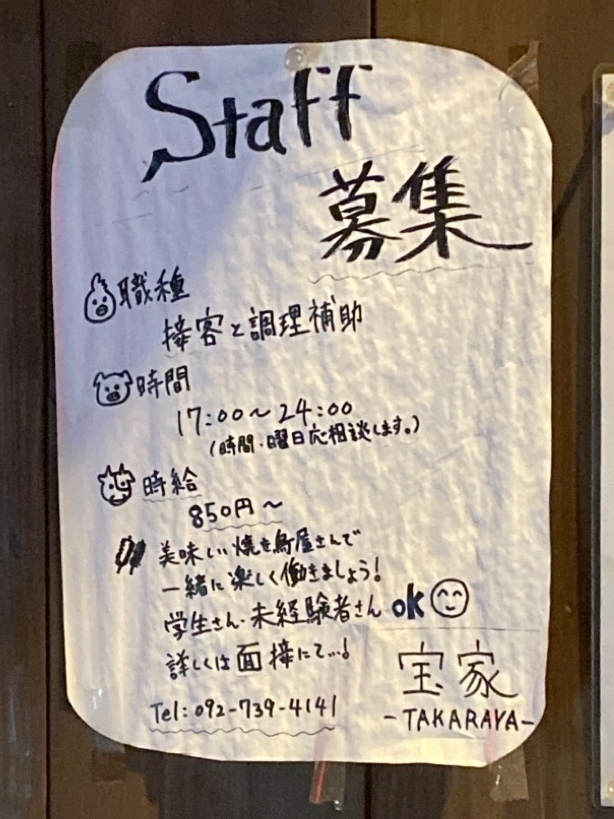 Staff
募集
職種
接客と調理補助
時間
17:00〜24:00
(時間・曜日応相談します。)
時給
850円〜
美味しい焼き鳥屋さんで
一緒に楽しく働きましょう!
学生さん・未経験者さん ok
詳しくは面接にて…!
宝家
-TAKARAYA-
Tel:092-739-4141